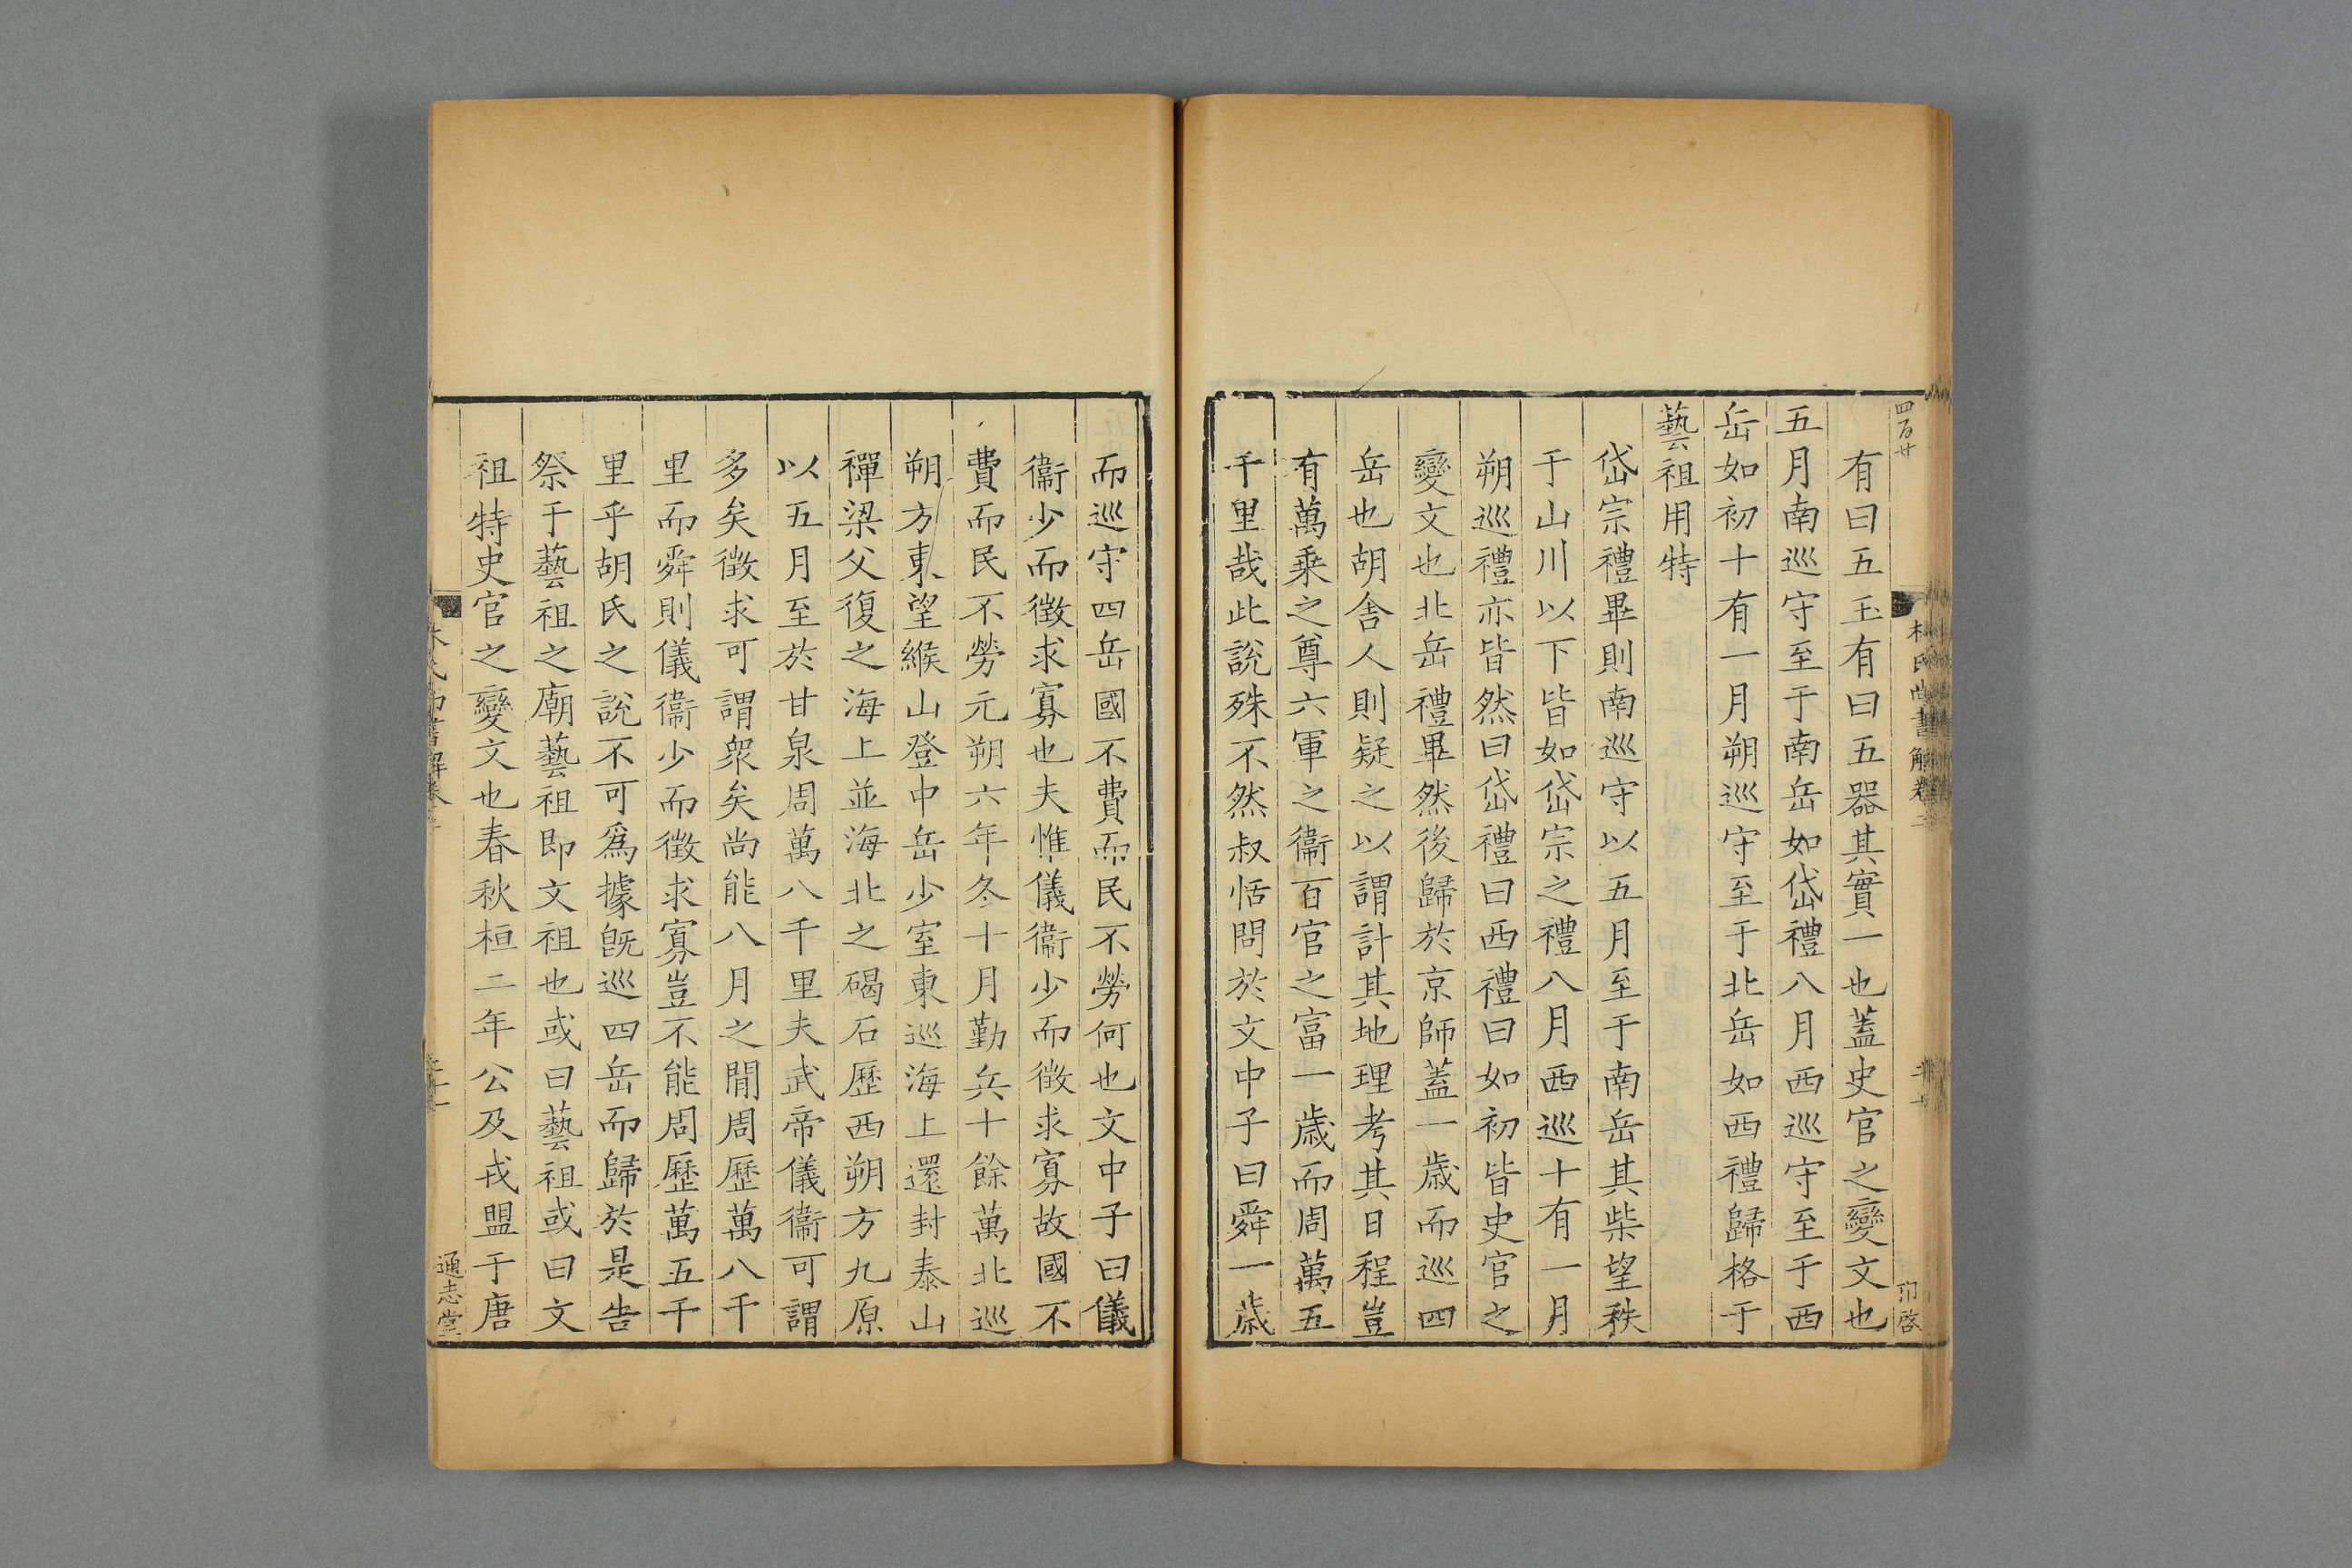 四百廿
林氏尚書解卷二
有曰五玉有曰五器其實一也蓋史官之變文也
五月南巡守至于南岳如岱禮八月西巡守至于西
岳如初十有一月朔巡守至于北岳如西禮歸格于
藝祖用特
岱宗禮畢則南巡守以五月至于南岳其柴望秩
于山川以下皆如岱宗之禮八月西巡十有一月
朔巡禮亦皆然曰岱禮曰西禮曰如初皆史官之
變文也北岳禮畢然後歸於京師蓋一歲而巡四
岳也胡舍人則疑之以謂計其地理考其日程豈
有萬乘之尊六軍之衞百官之富一歲而周萬五
千里哉此說殊不然叔恬問於文中子曰舜一歲
而巡守四岳國不費而民不勞何也文中子曰儀
衞少而徵求寡也夫惟儀衞少而徵求寡故國不
費而民不勞元朔六年冬十月勤兵十餘萬北巡
朔方東望緱山登中岳少室東巡海上還封泰山
禪梁父復之海上並海北之碣石歷西朔方九原
以五月至於甘泉周萬八千里夫武帝儀衞可謂
多矣徵求可謂衆矣尚能八月之閒周歷萬八千
里而舜則儀衞少而徵求寡豈不能周歷萬五千
里乎胡氏之說不可爲據旣巡四岳而歸於是告
祭于藝祖之廟藝祖即文祖也或曰藝祖或曰文
祖特史官之變文也春秋桓二年公及戎盟于唐
通志堂